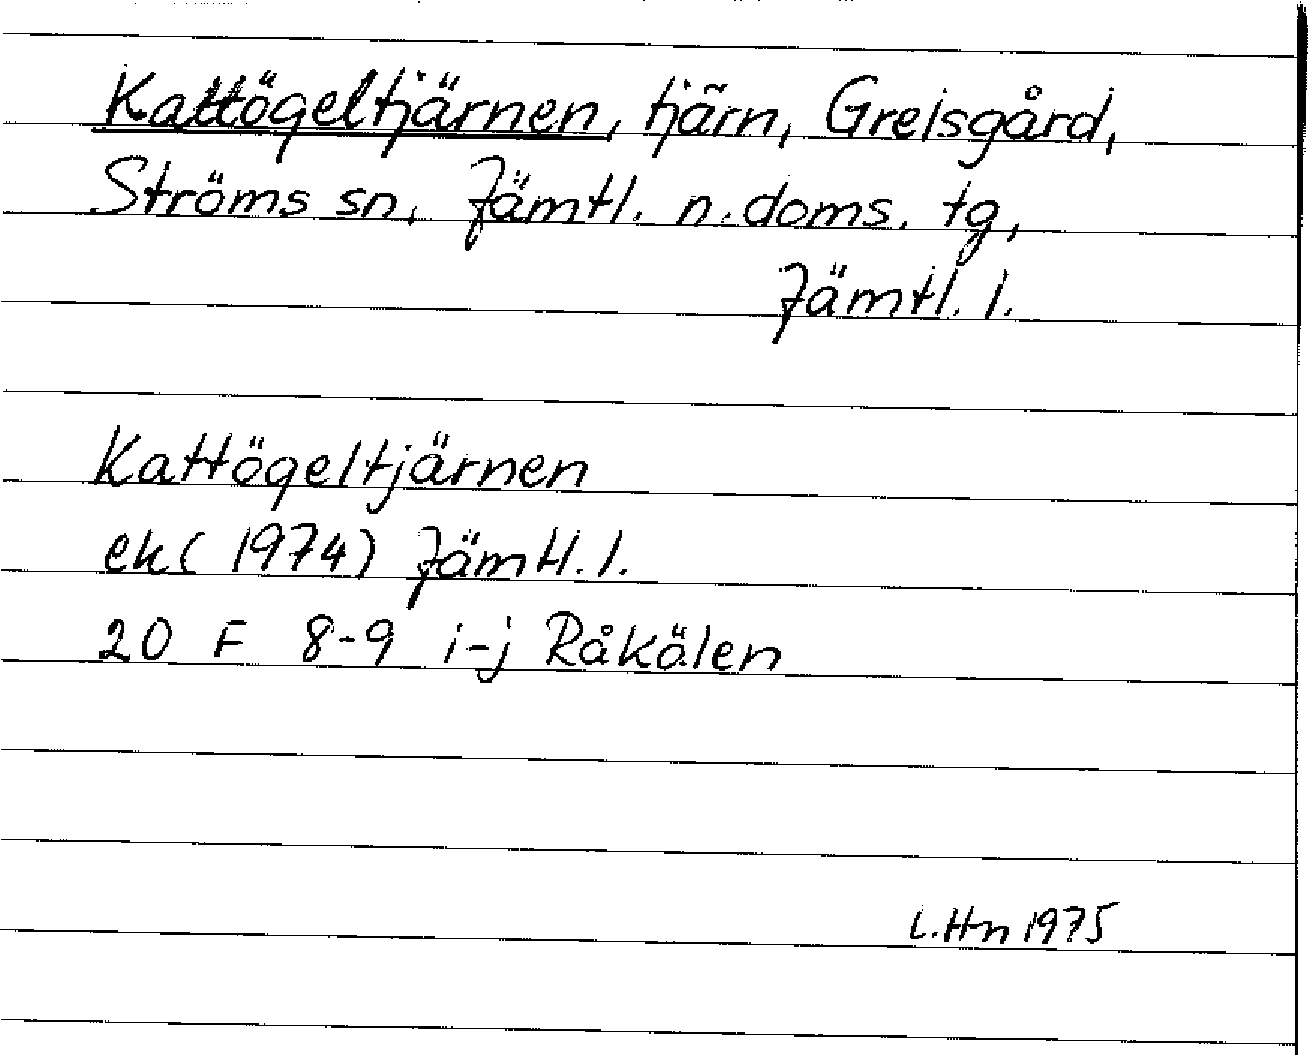 Kattögeltjärnen, tjärn, Greisgård,
Ströms sn, Jämtl. n. doms. tg,
Jämtl. l.
Kattögeltjärnen
ek (1974) Jämtl. l.
20 F 8-9 i-j Råkälen
L. Hn 1975